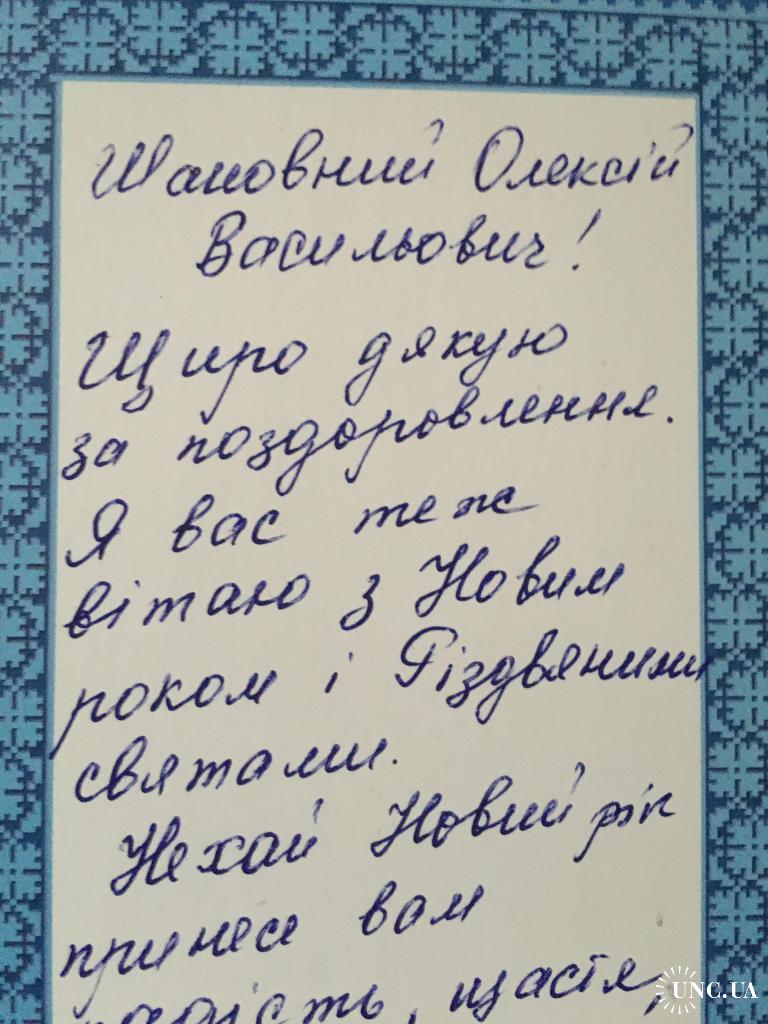 Шановний Олексій
Васильович!
Щиро дякую
за поздоровлення.
Я вас теж
вітаю з Новим
роком і Різдвяними
святами.
Нехай Новий рік
принесе вам
радість, щастя,
UNC.UA